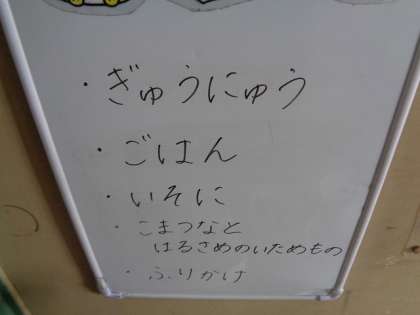 ・ぎゅうにゅう
・ごはん
・いそに
・こまつなと
はるさめのいためもの
・ふりかけ